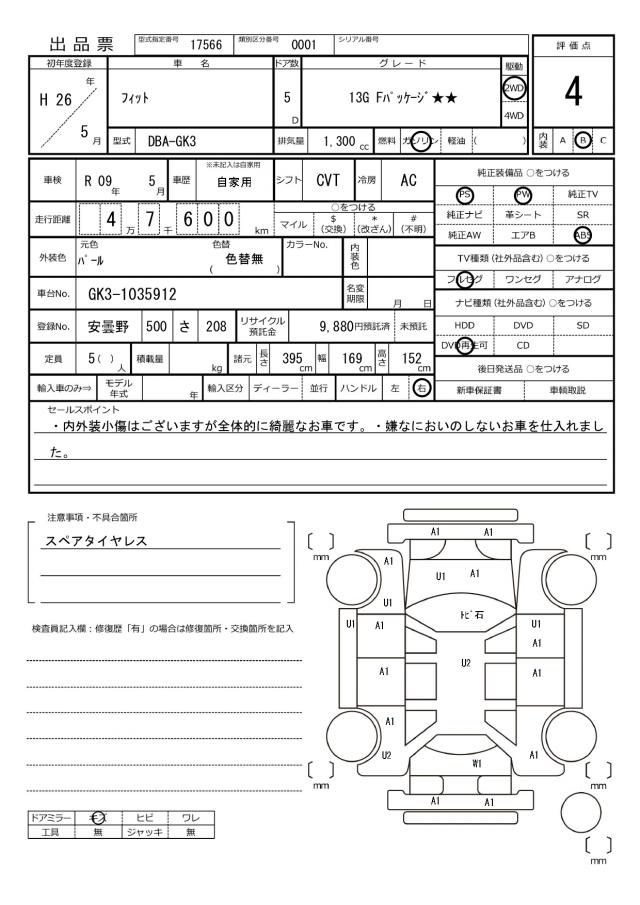 出品票 型式指定番号 17566 類別区分番号 0001 シリアル番号
評価点
初年度登録 車名 ドア数 グレード 駆動
H 26 年 フィット 5 D 13G Fパッケージ★★ 2WD 4WD
4
5 月 型式 DBA-GK3 排気量 1,300 cc 燃料 ガソリン 軽油 ( )
内装 A B C
車検 R 09 年 5 月 車歴 ※未記入は自家用 自家用 シフト CVT 冷房 AC
純正装備品 ○をつける
PS PW 純正TV
走行距離 4 万 7 千 6 0 0 km
○をつける
マイル $ (交換) * (改ざん) # (不明)
純正ナビ 革シート SR
純正AW エアB ABS
外装色 元色 パール 色替 ( 色替無 ) カラーNo. 内装色
TV種類 (社外品含む) ○をつける
フルセグ ワンセグ アナログ
車台No. GK3-1035912 名変期限 月 日
ナビ種類 (社外品含む) ○をつける
登録No. 安曇野 500 さ 208 リサイクル預託金 9,880円預託済 未預託
HDD DVD SD
DVD再生可 CD
定員 5 ( ) 人 積載量 kg 諸元 長さ 395 cm 幅 169 cm 高さ 152 cm
後日発送品 ○をつける
輸入車のみ⇒ モデル年式 年 輸入区分 ディーラー 並行 ハンドル 左 右
新車保証書 車輌取説
セールスポイント
・内外装小傷はございますが全体的に綺麗なお車です。・嫌なにおいのしないお車を仕入れまし
た。
注意事項・不具合箇所
スペアタイヤレス
検査員記入欄：修復歴「有」の場合は修復箇所・交換箇所を記入
A1 A1
mm mm
A1 U1 A1 A1
U1
トビ石
U1 A1 U1
A1
U2
A1 A1
A1
U2 W1 A1
mm mm
A1 A1
mm
ドアミラー キズ ヒビ ワレ
工具 無 ジャッキ 無